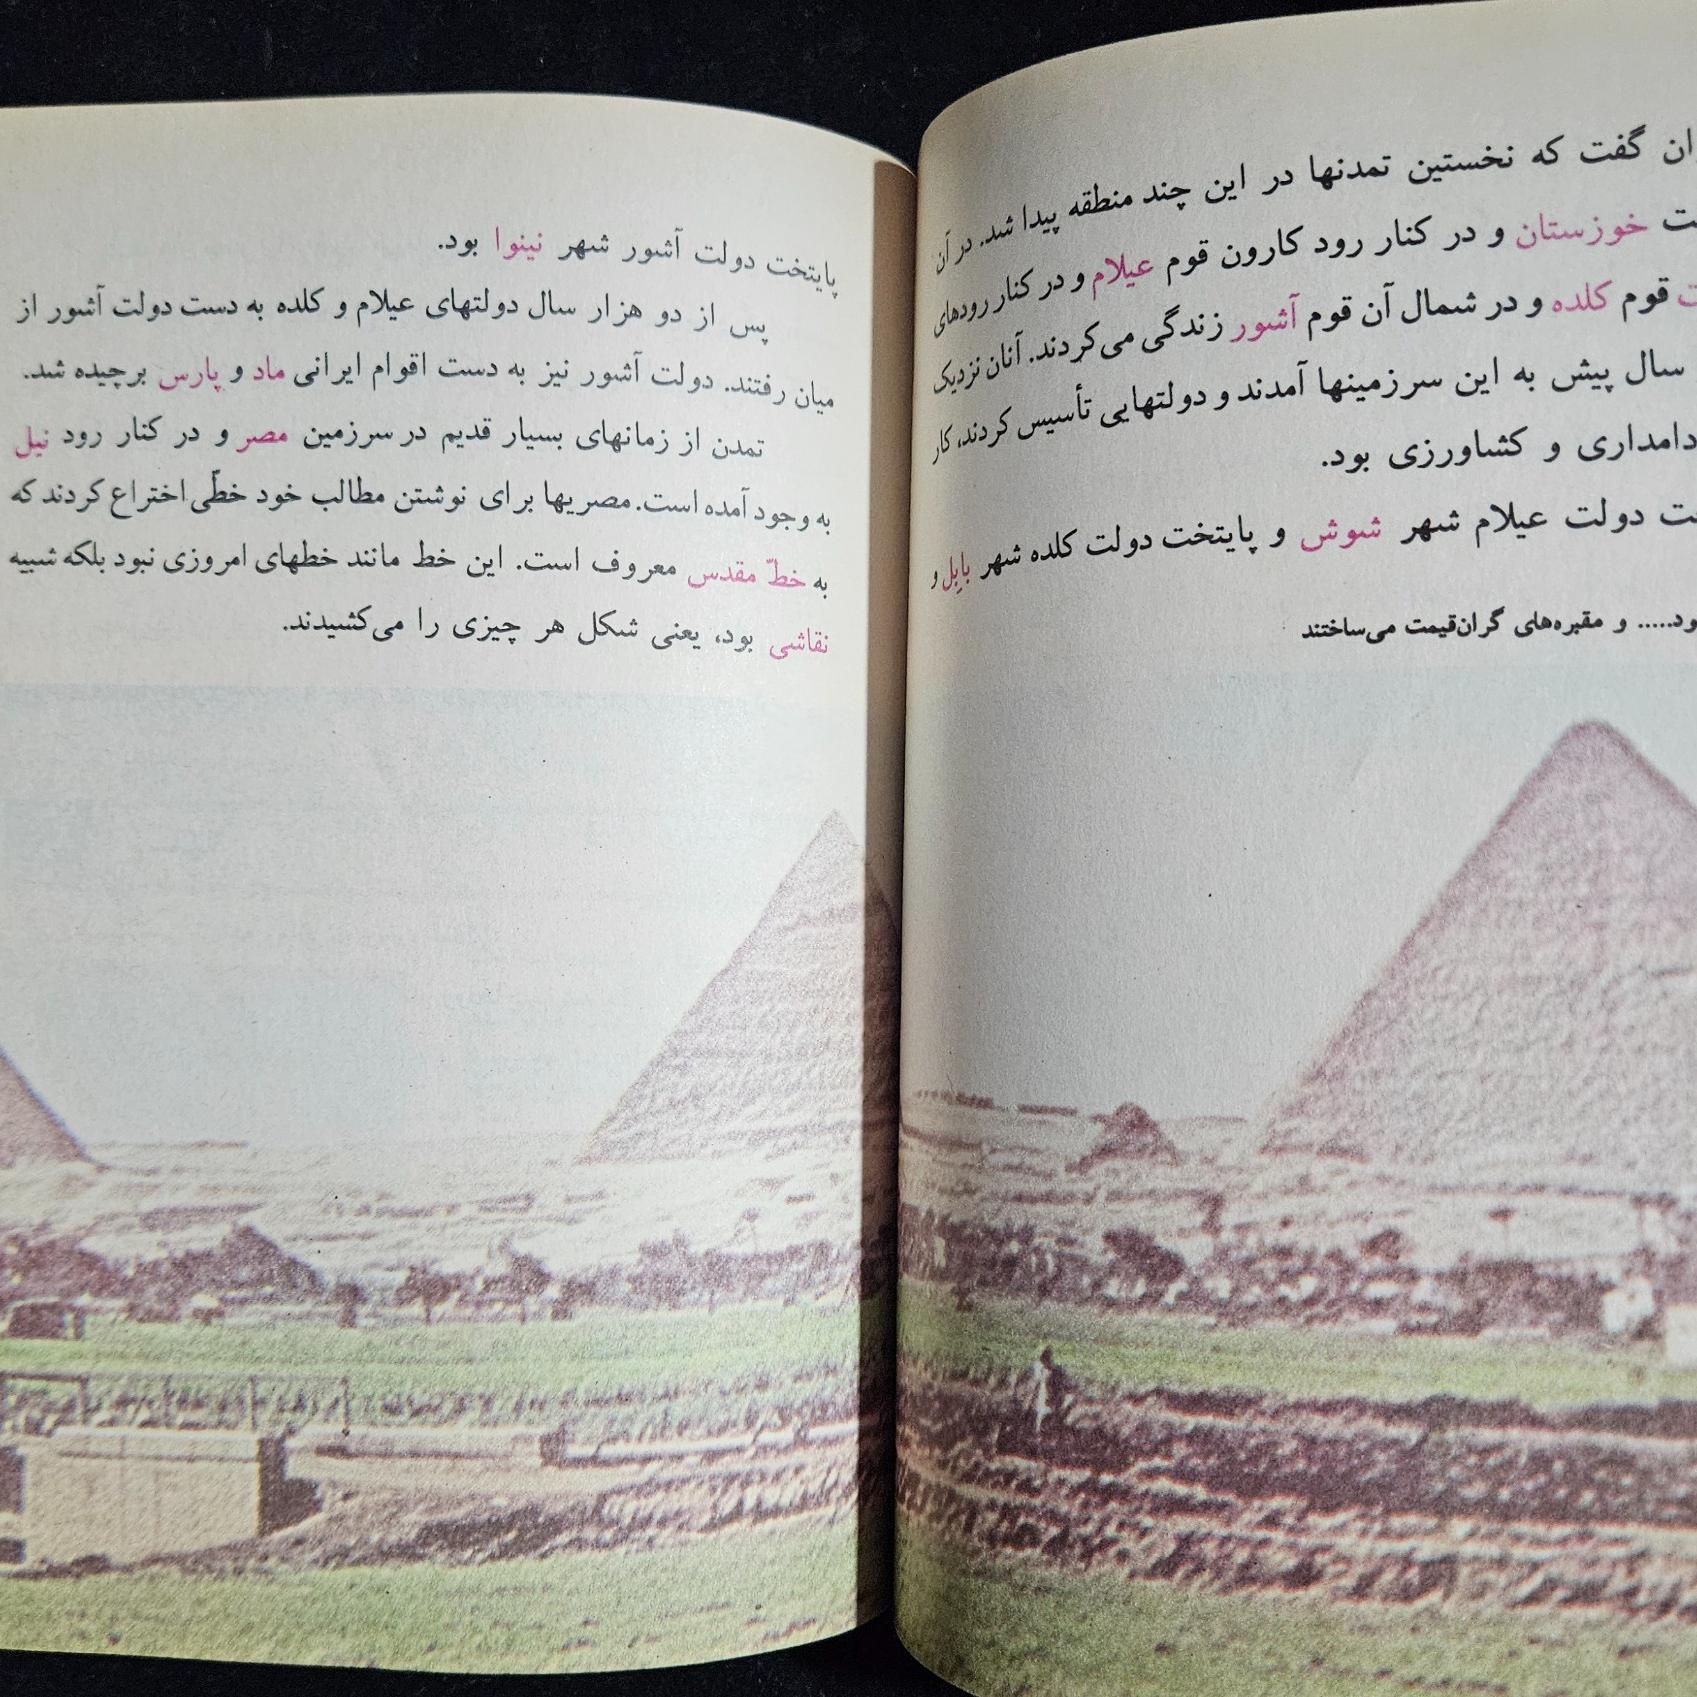 گفت که نخستین تمدنها در این چند منطقه پیدا شد. در آن
خوزستان و در کنار رود کارون قوم عیلام و در کنار رودهای
قوم کلده و در شمال آن قوم آشور زندگی می‌کردند. آنان نزدیک
سال پیش به این سرزمینها آمدند و دولتهایی تأسیس کردند، کار
دامداری و کشاورزی بود.
دولت عیلام شهر شوش و پایتخت دولت کلده شهر بابِل و
و مقبره‌های گران‌قیمت می‌ساختند
پایتخت دولت آشور شهر نینوا بود.
پس از دو هزار سال دولتهای عیلام و کلده به دست دولت آشور از
میان رفتند. دولت آشور نیز به دست اقوام ایرانی ماد و پارس برچیده شد.
تمدن از زمانهای بسیار قدیم در سرزمین مصر و در کنار رود نیل
به وجود آمده است. مصریها برای نوشتن مطالب خود خطّی اختراع کردند که
به خطّ مقدس معروف است. این خط مانند خطهای امروزی نبود بلکه شبیه
نقاشی بود، یعنی شکل هر چیزی را می‌کشیدند.